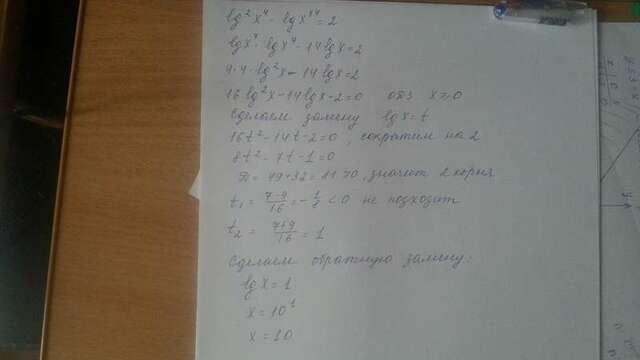 lg²x⁴ - lgx¹⁴ = 2
lgx⁴ · lgx⁴ - 14lgx = 2
4·4·lg²x - 14lgx = 2
16lg²x - 14lgx - 2 = 0 одз x > 0
Сделаем замену lgx = t
16t² - 14t - 2 = 0, сократим на 2
8t² - 7t - 1 = 0
D = 49 + 32 = 81 > 0, значит 2 корня
t₁ = (7-9)/16 = -1/8 < 0 не подходит
t₂ = (7+9)/16 = 1
Сделаем обратную замену:
lgx = 1
x = 10¹
x = 10